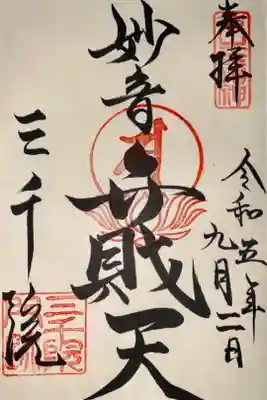 奉拝
令和五年
九月二日
妙音弁財天
三千院